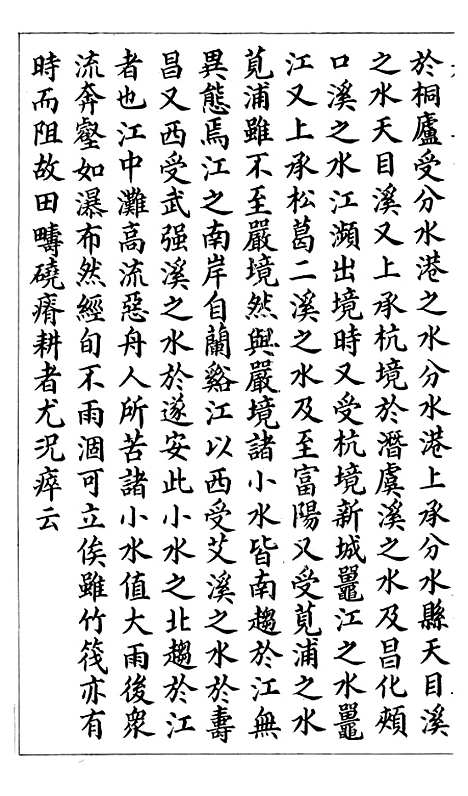 於桐廬受分水港之水分水港上承分水縣天目溪
之水天目溪又上承杭境於潛虞溪之水及昌化頰
口溪之水江瀕出境時又受杭境新城鼉江之水鼉
江又上承松葛二溪之水及至富陽又受莧浦之水
莧浦雖不至嚴境然與嚴境諸小水皆南趨於江無
異態焉江之南岸自蘭谿江以西受艾溪之水於壽
昌又西受武强溪之水於遂安此小水之北趨於江
者也江中灘高流惡舟人所苦諸小水值大雨後衆
流奔壑如瀑布然經旬不雨涸可立俟雖竹筏亦有
時而阻故田疇磽瘠耕者尤况瘁云